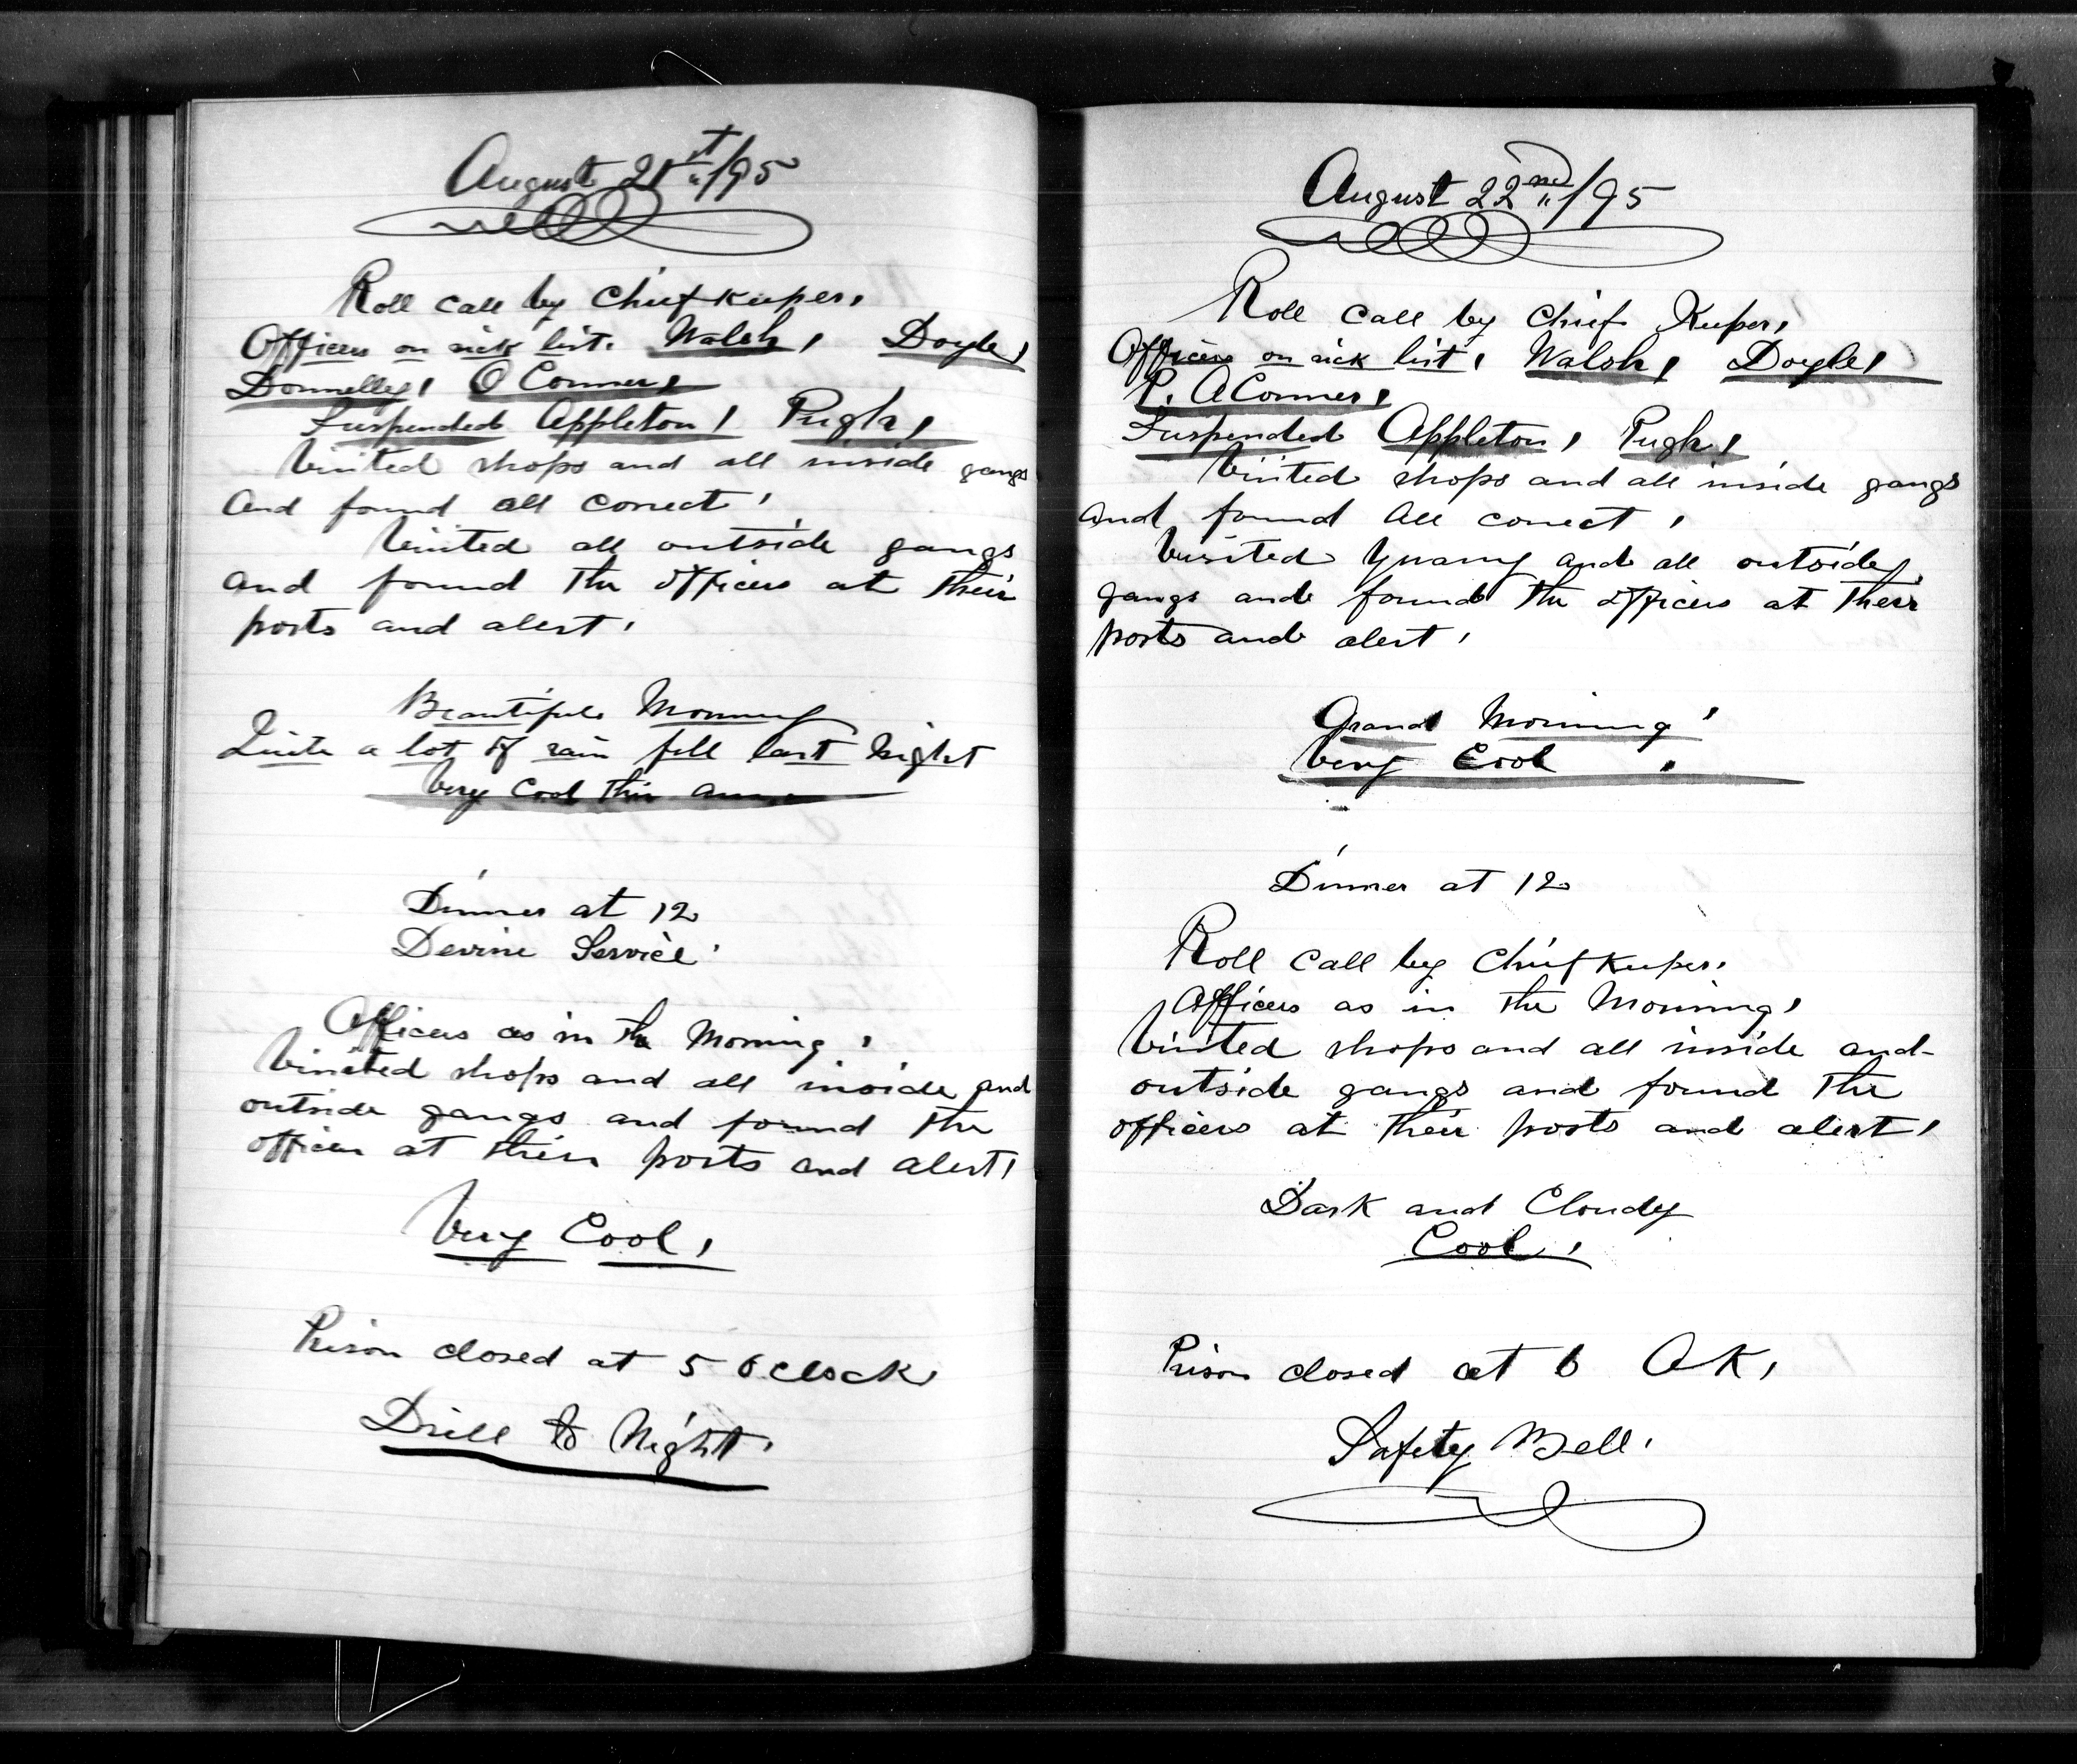 August 21st/95
Roll call by Chief Keeper,
Officers on sick list. Walsh, Doyle,
Donnelly, O Conner,
Suspended Appleton, Pugh,
Visited shops and all inside gangs
and found all correct,
Visited all outside gangs
and found the officers at their
posts and alert,
Beautiful Morning
Quite a lot of rain fell last night
Very Cool this
Dinner at 12
Devine Service
Officers as in the Morning,
Visited shops and all inside and
outside gangs and found the
officers at their posts and alert,
Very Cool,
Prison closed at 5 o clock,
Drill to Night.
August 22nd/95
Roll call by Chief Keeper,
Officers on sick list, Walsh, Doyle,
P. O Conner,
Suspended Appleton, Pugh,
Visited shops and all inside gangs
and found all correct,
Visited Quarry and all outside
gangs and found the officers at their
posts and alert,
Grand Morning,
Very Cool.
Dinner at 12
Roll call by Chief Keeper.
Officers as in the Morning,
Visited shops and all inside and
outside gangs and found the
officers at their posts and alert,
Dark and Cloudy
Cool,
Prison closed at 6 OK,
Safety Bell.